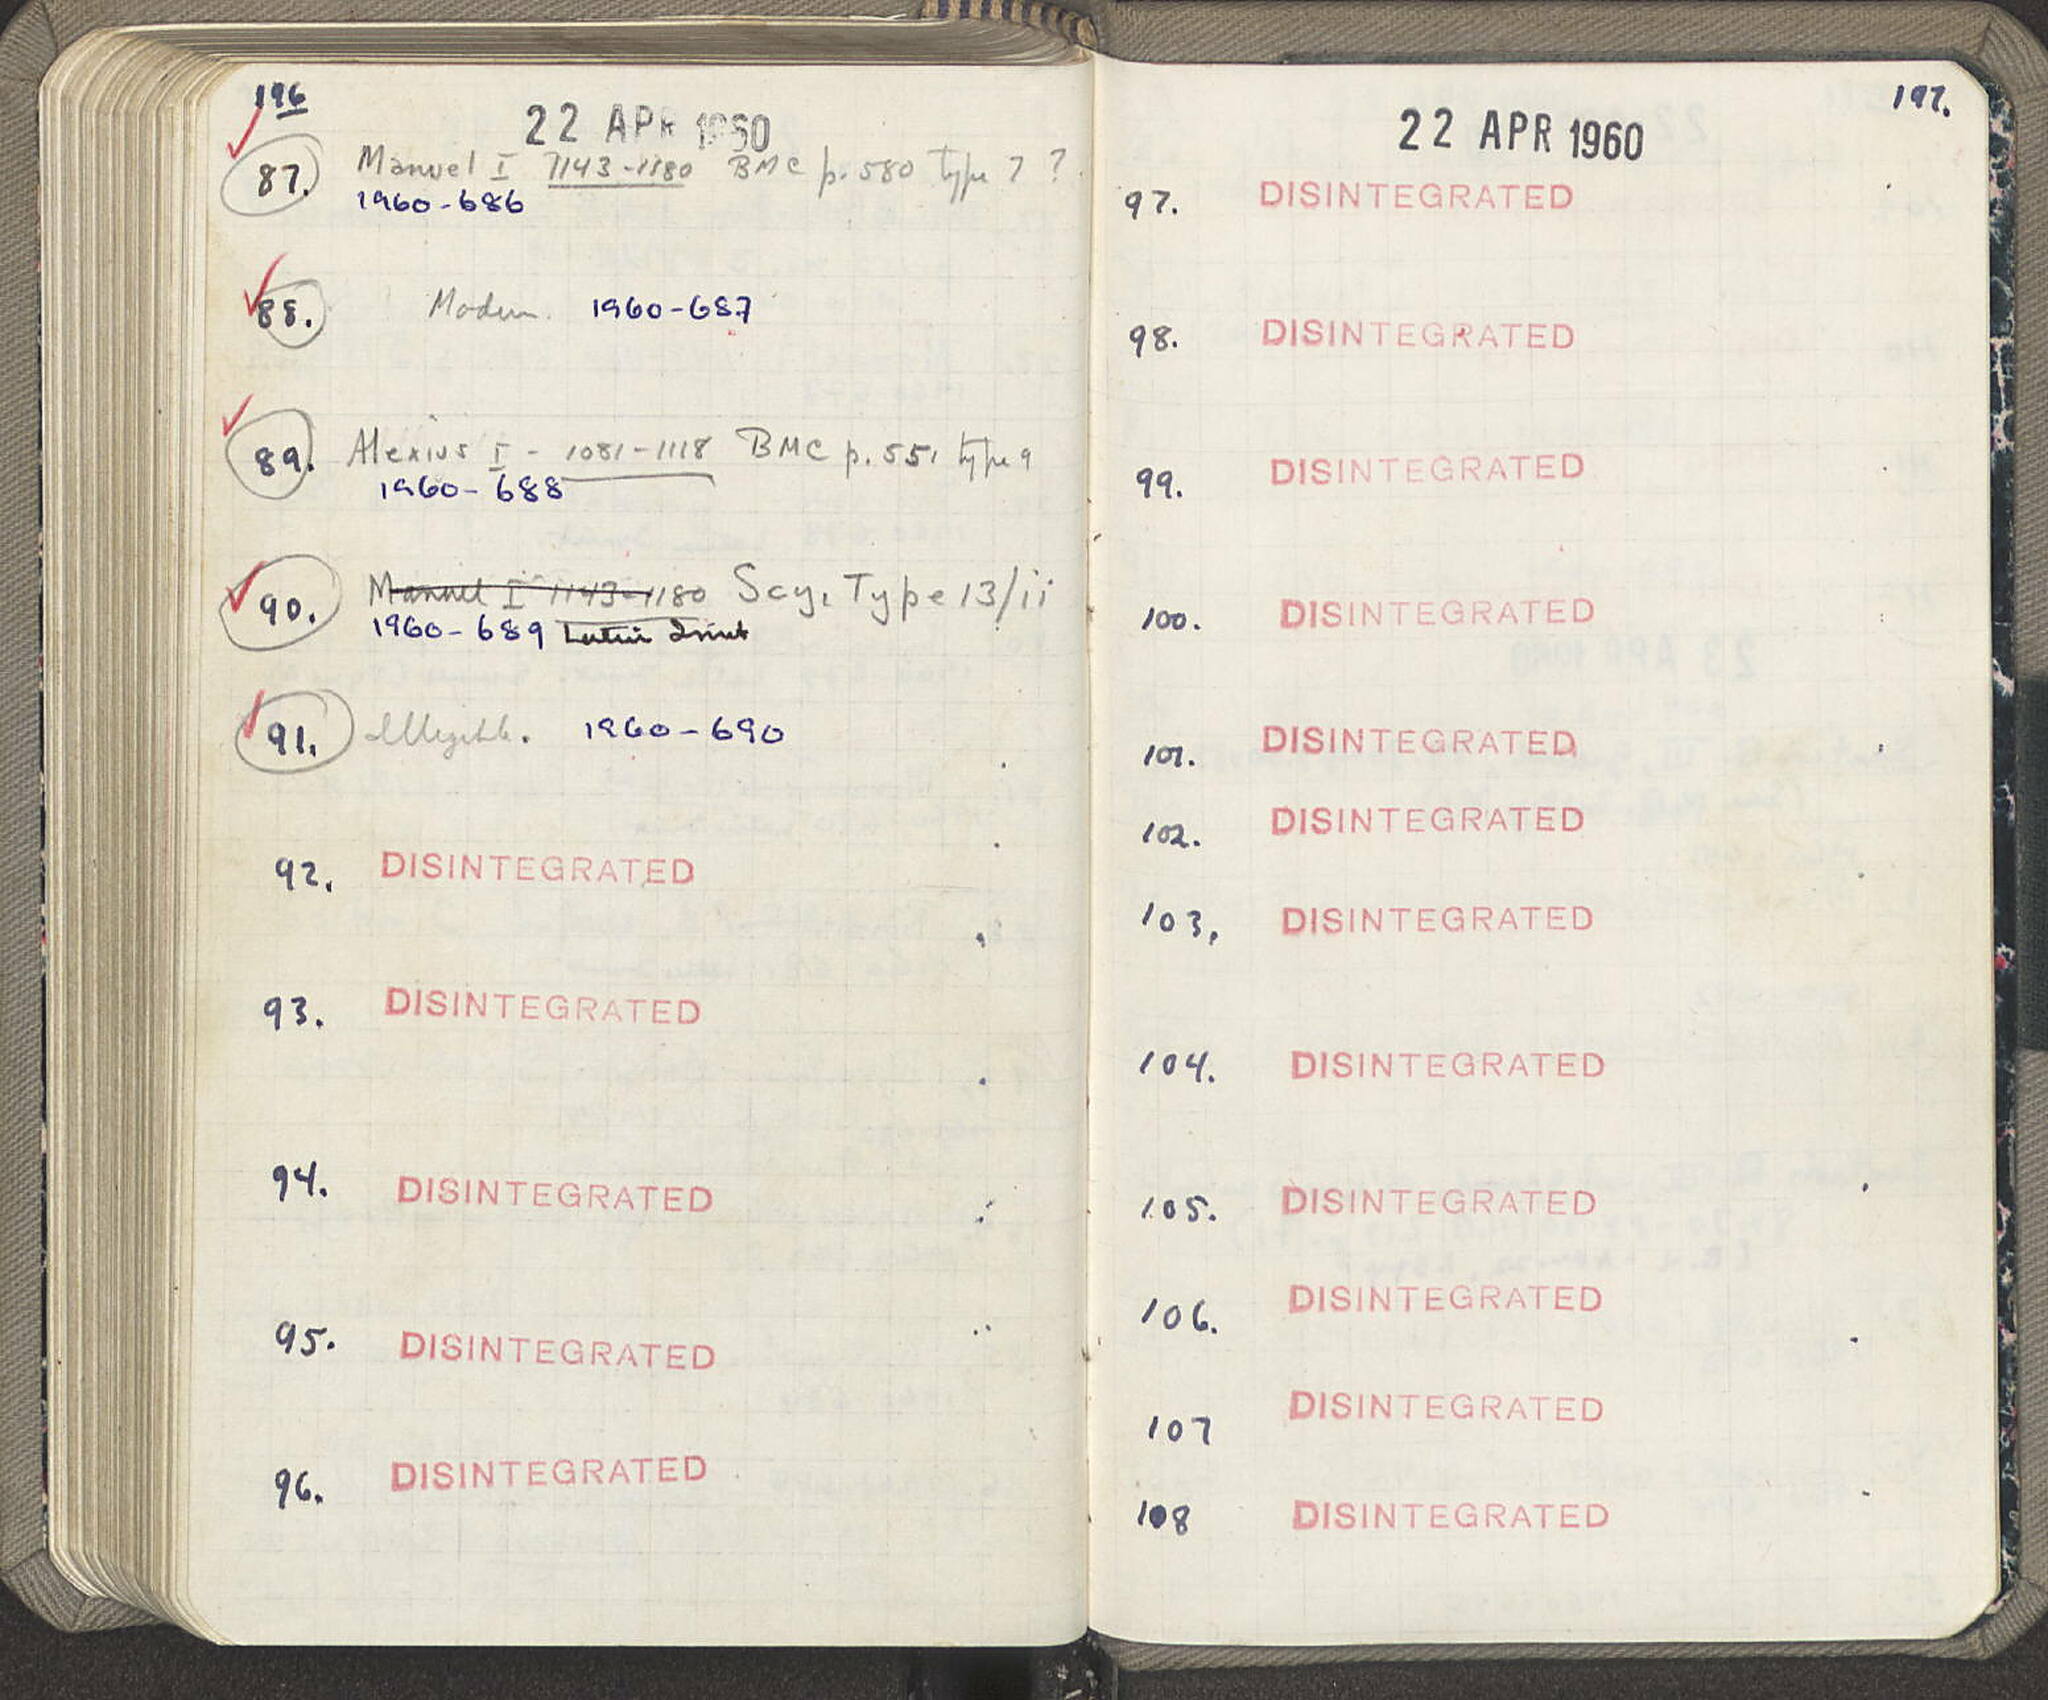 196
22 APR 1960
87. Manuel I 1143-1180 BMC p. 580 type 7 ?
1960-686
88. Modern. 1960-687
89. Alexius I - 1081-1118 BMC p. 551 type 9
1960-688
90. Manuel I 1143-1180 Scy. Type 13/ii
1960-689 Latin Imit
91. Illegible. 1960-690
92. DISINTEGRATED
93. DISINTEGRATED
94. DISINTEGRATED
95. DISINTEGRATED
96. DISINTEGRATED
197.
22 APR 1960
97. DISINTEGRATED
98. DISINTEGRATED
99. DISINTEGRATED
100. DISINTEGRATED
101. DISINTEGRATED
102. DISINTEGRATED
103. DISINTEGRATED
104. DISINTEGRATED
105. DISINTEGRATED
106. DISINTEGRATED
107 DISINTEGRATED
108 DISINTEGRATED